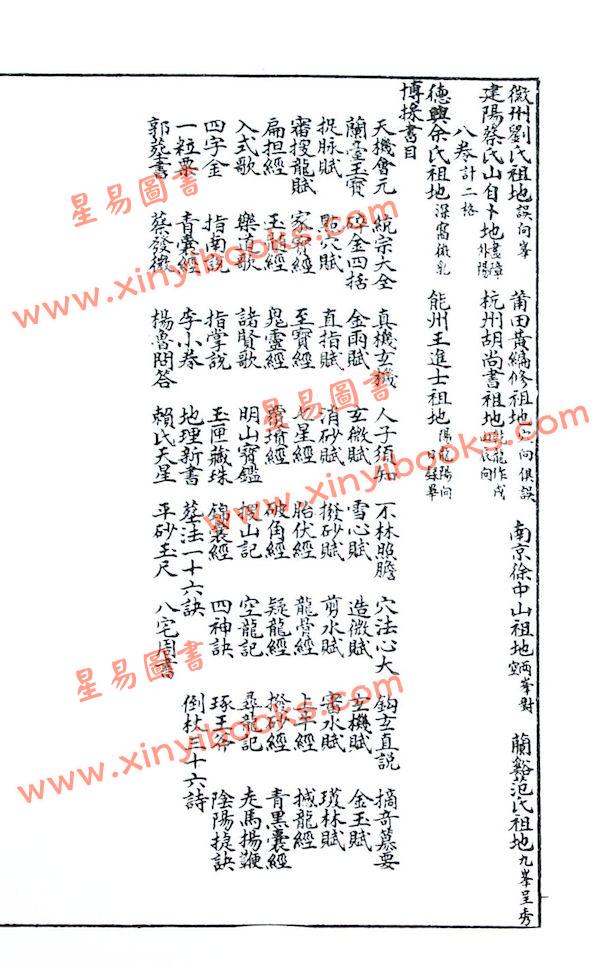 徽州劉氏祖地誤向峯 莆田黄編修祖地向俱誤 南京徐中山祖地兩峯對 蘭谿范氏祖地九峯呈秀
建陽蔡氏山自卜地盡障外陽 杭州胡尚書祖地
八卷計二格
德興余氏祖地深窩微乳 能州王進士祖地
博採書目
天機會元 統宗大全 真機玄機 人子須知 不林照膽 穴法心大 鈎玄直説 摘奇纂要
蘭臺玉寶 碎金四括 金雨賦 玄微賦 雪心賦 造微賦 玄機賦 金玉賦
捉脉賦 點穴賦 直指賦 消砂賦 撥砂賦 剪水賦 審水賦 璞林賦
審授龍賦 家寶經 至寶經 七星經 胎伏經 龍骨經 上牛經 撼龍經
扁担經 玉髓經 鬼靈經 覆墳經 破角經 疑龍經 撥砂經 青黒囊經
入式歌 樂道歌 諸賢歌 明山寶鑑 掘山記 空龍記 尋龍記 走馬揚鞭
四字金 指南説 指掌説 玉匣藏珠 錦囊經 四神訣 琢玉斧 陰陽捷訣
一粒粟 青囊經 李小卷 地理新書 葬法一十六訣 倒杖三十六詩
郭葬書 蔡發微 楊魯問答 賴氏天星 平砂玉尺 八宅周書
星易圖書
www.xinyibooks.com
星易圖書
www.xinyibooks.com
星易圖書
www.xinyibooks.com